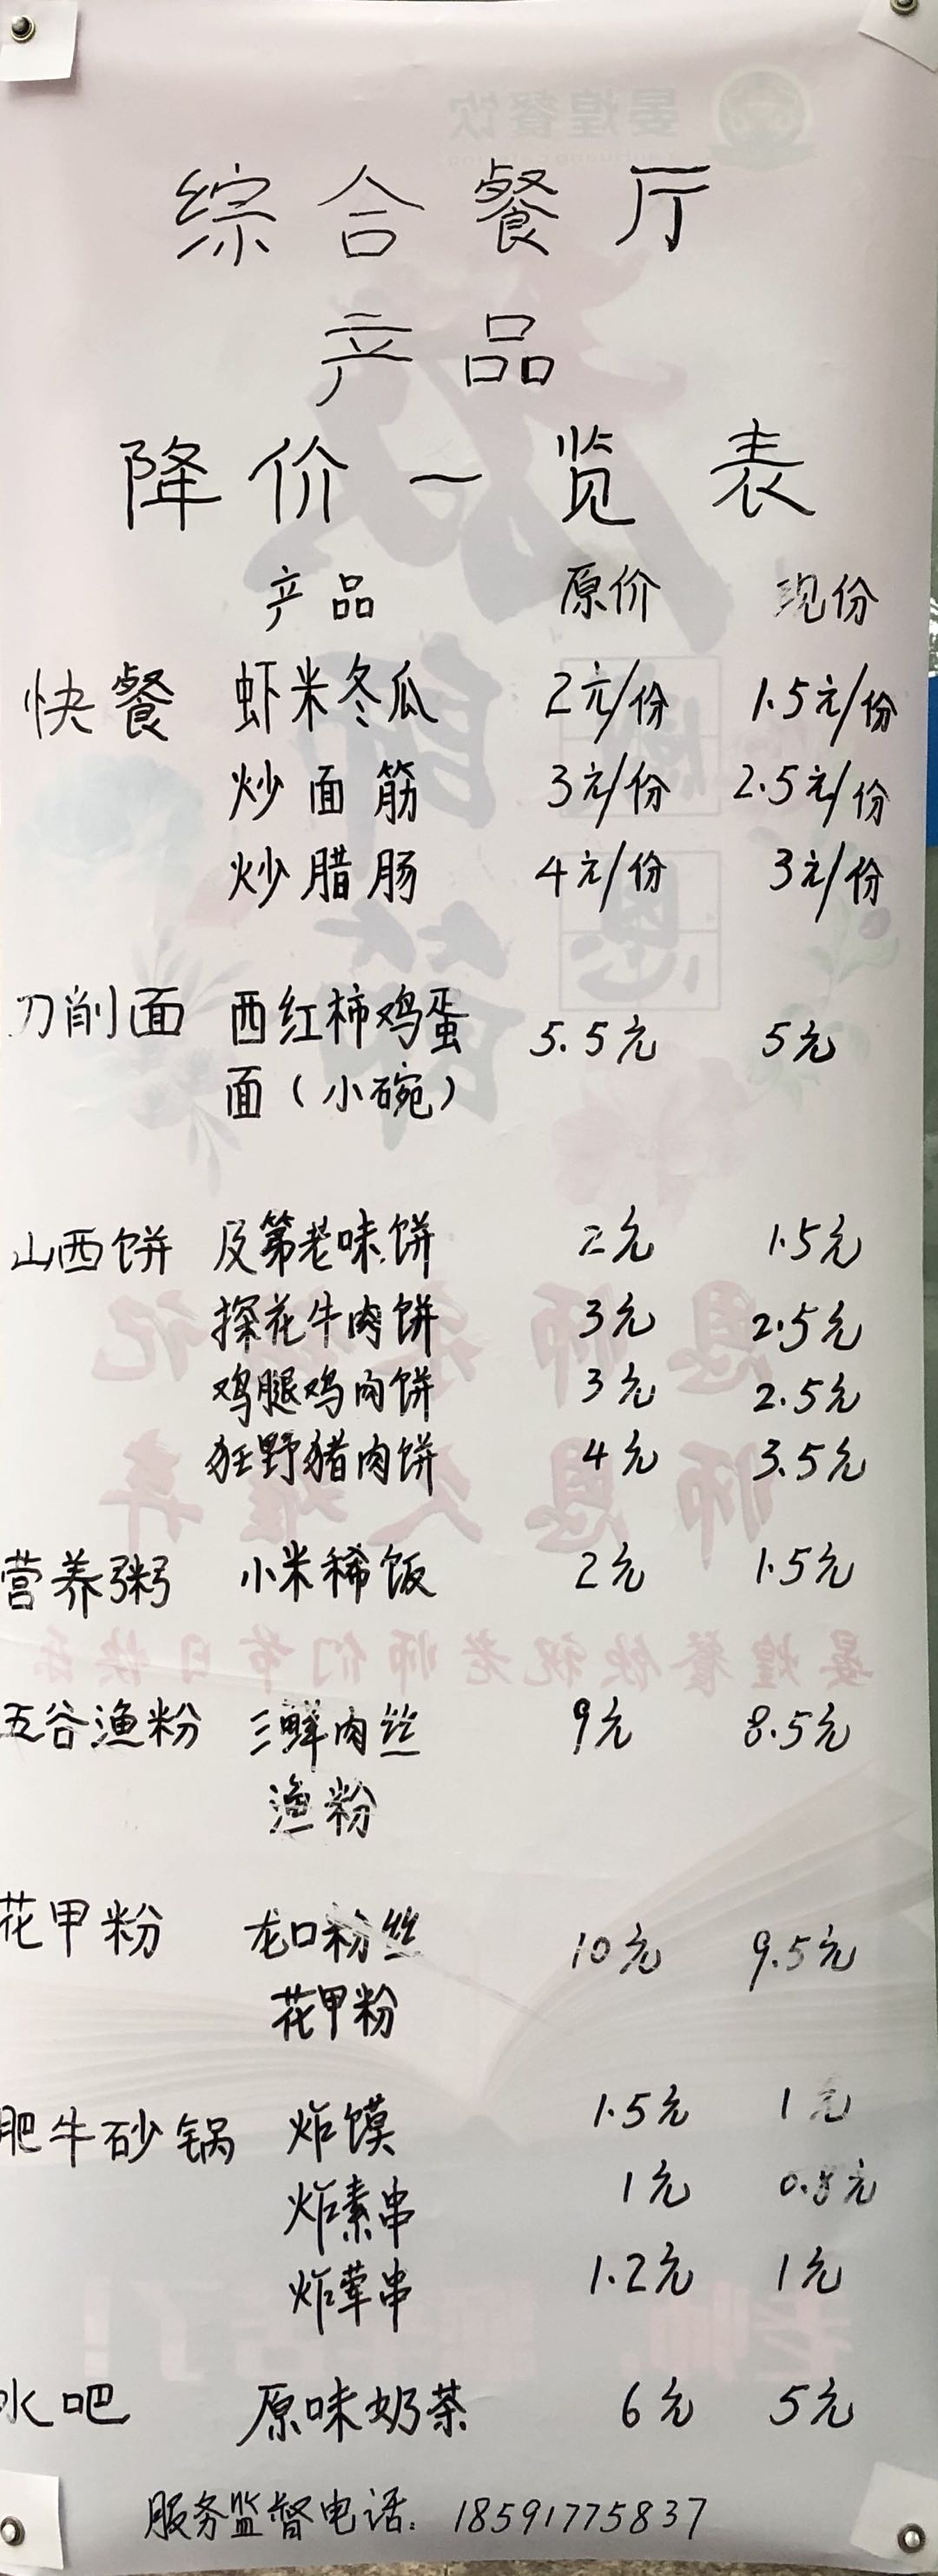 晏煌餐饮
综合餐厅
产品
降价一览表
产品 原价 现份
快餐 虾米冬瓜 2元/份 1.5元/份
炒面筋 3元/份 2.5元/份
炒腊肠 4元/份 3元/份
刀削面 西红柿鸡蛋 5.5元 5元
面（小碗）
山西饼 及第老味饼 2元 1.5元
探花牛肉饼 3元 2.5元
鸡腿鸡肉饼 3元 2.5元
狂野猪肉饼 4元 3.5元
营养粥 小米稀饭 2元 1.5元
五谷渔粉 三鲜肉丝 9元 8.5元
渔粉
花甲粉 龙口粉丝 10元 9.5元
花甲粉
肥牛砂锅 炸馍 1.5元 1元
炸素串 1元 0.8元
炸荤串 1.2元 1元
水吧 原味奶茶 6元 5元
服务监督电话：18591775837